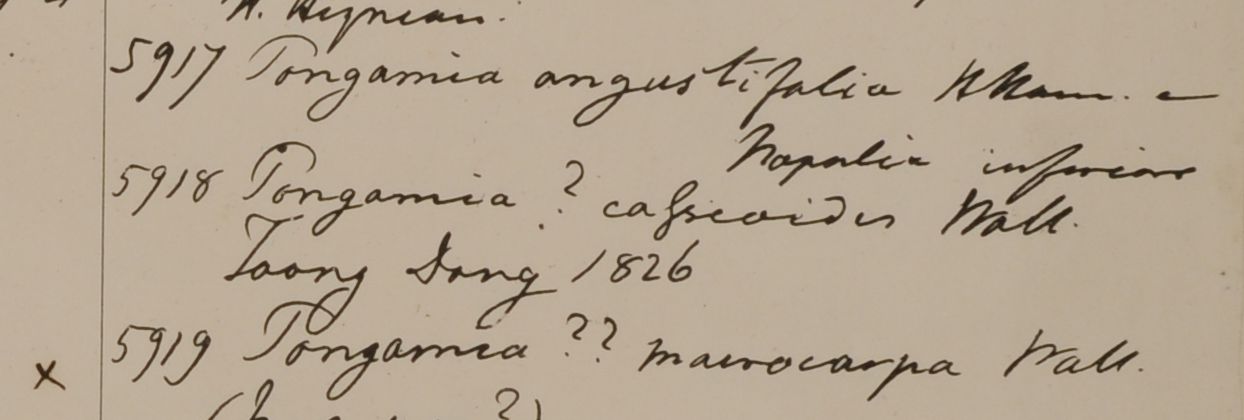 H. Heynean.
5917 Pongamia angustifolia HHam. e
Napalia inferiore
5918 Pongamia ? cassioides Wall.
Toong Dong 1826
5919 Pongamia ?? macrocarpa Wall.
x
?)